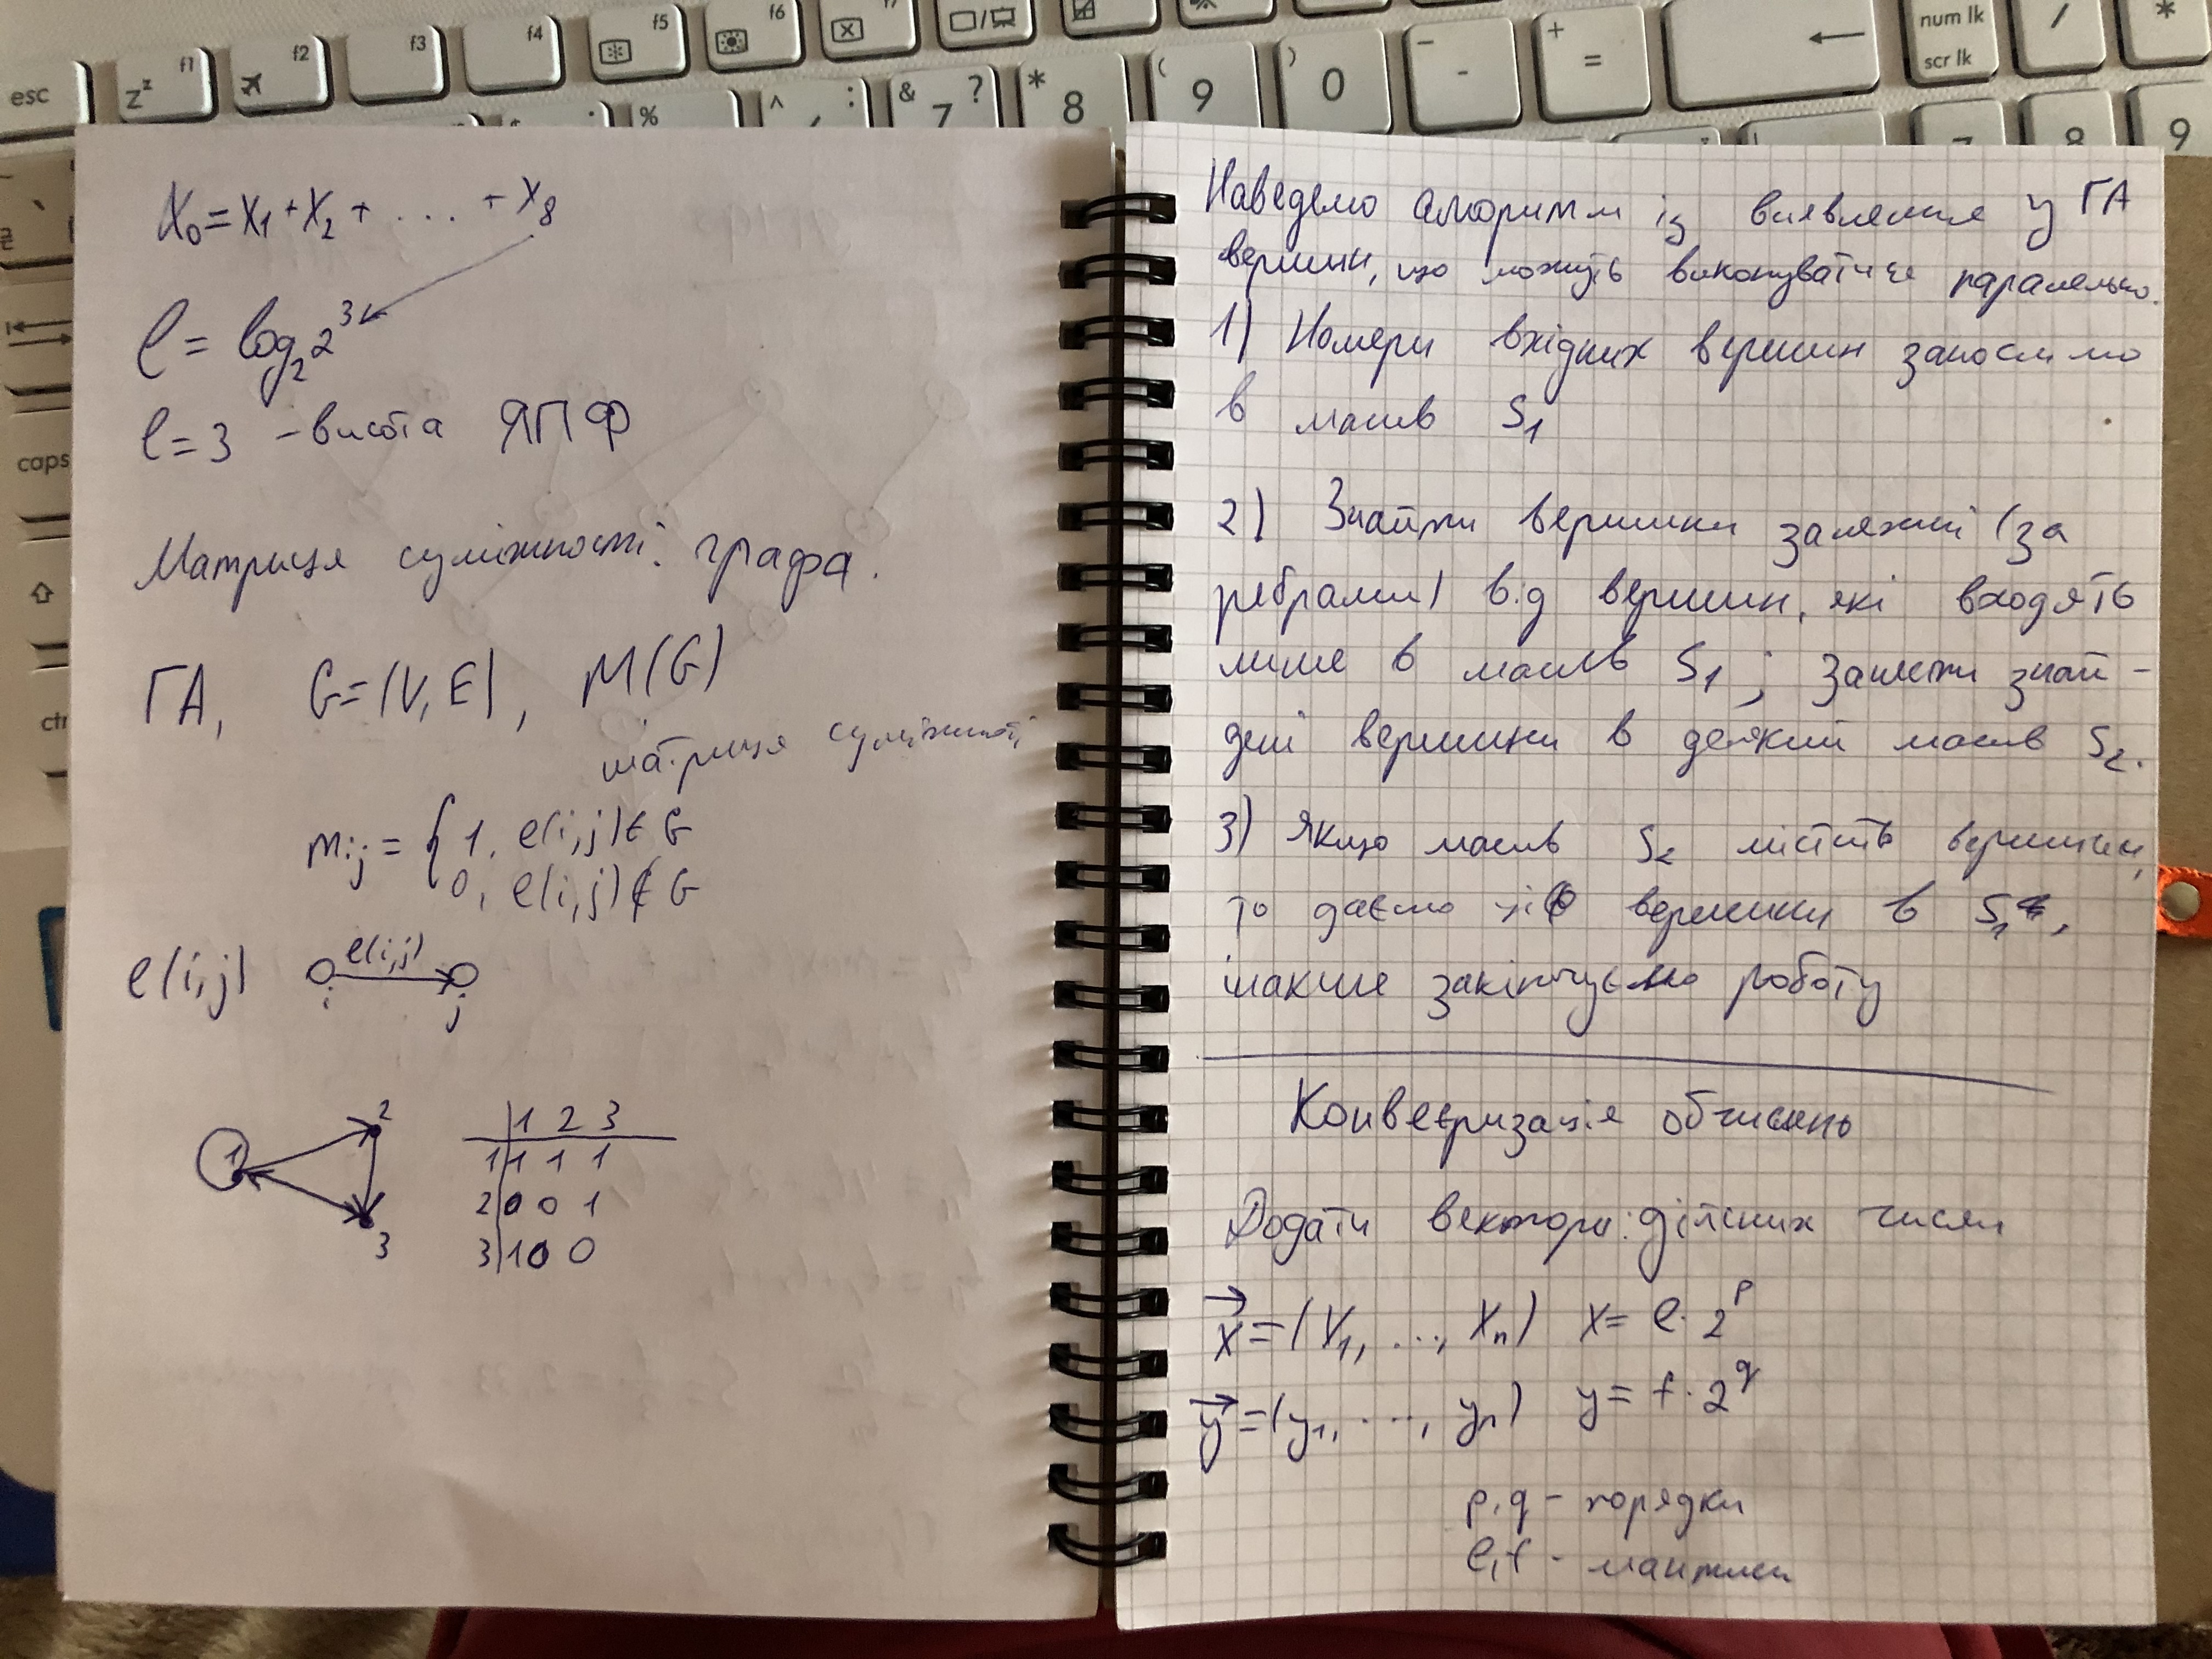 esc
zᶻ f1
f2
f3
f4
f5
f6
f7
num lk
scr lk
/
*
%
^ :
& 7 ?
* 8
( 9
) 0
- -
+ =
7
8
9
caps
ctr
X₀ = X₁ + X₂ + ... + X₈
ℓ = log₂ 2³
ℓ = 3 - висота ЯПФ
Матриця суміжності графа.
ГА, G = (V, E), M(G)
матриця суміжності
mᵢⱼ = { 1, e(i,j) ∈ G
0, e(i,j) ∉ G
e(i,j) e(i,j)
i j
1 2 3
1 2 3
1 1 1 1
2 0 0 1
3 1 0 0
Наведемо алгоритм із виявлення у ГА
вершин, що можуть виконуватися паралельно.
1) Номери вхідних вершин заносимо
в масив S₁
2) Знайти вершини залежні (за
ребрами) від вершин, які входять
лише в масив S₁; Занести знай-
дені вершини в деякий масив S₂.
3) Якщо масив S₂ містить вершини,
то даємо ці вершини в S₁,
інакше закінчуємо роботу
Конвеєризація обчислень
Додати вектори дійсних чисел
x⃗ = (x₁, ..., xₙ) x = e · 2ᵖ
y⃗ = (y₁, ..., yₙ) y = f · 2^q
p, q - порядки
e, f - мантиси